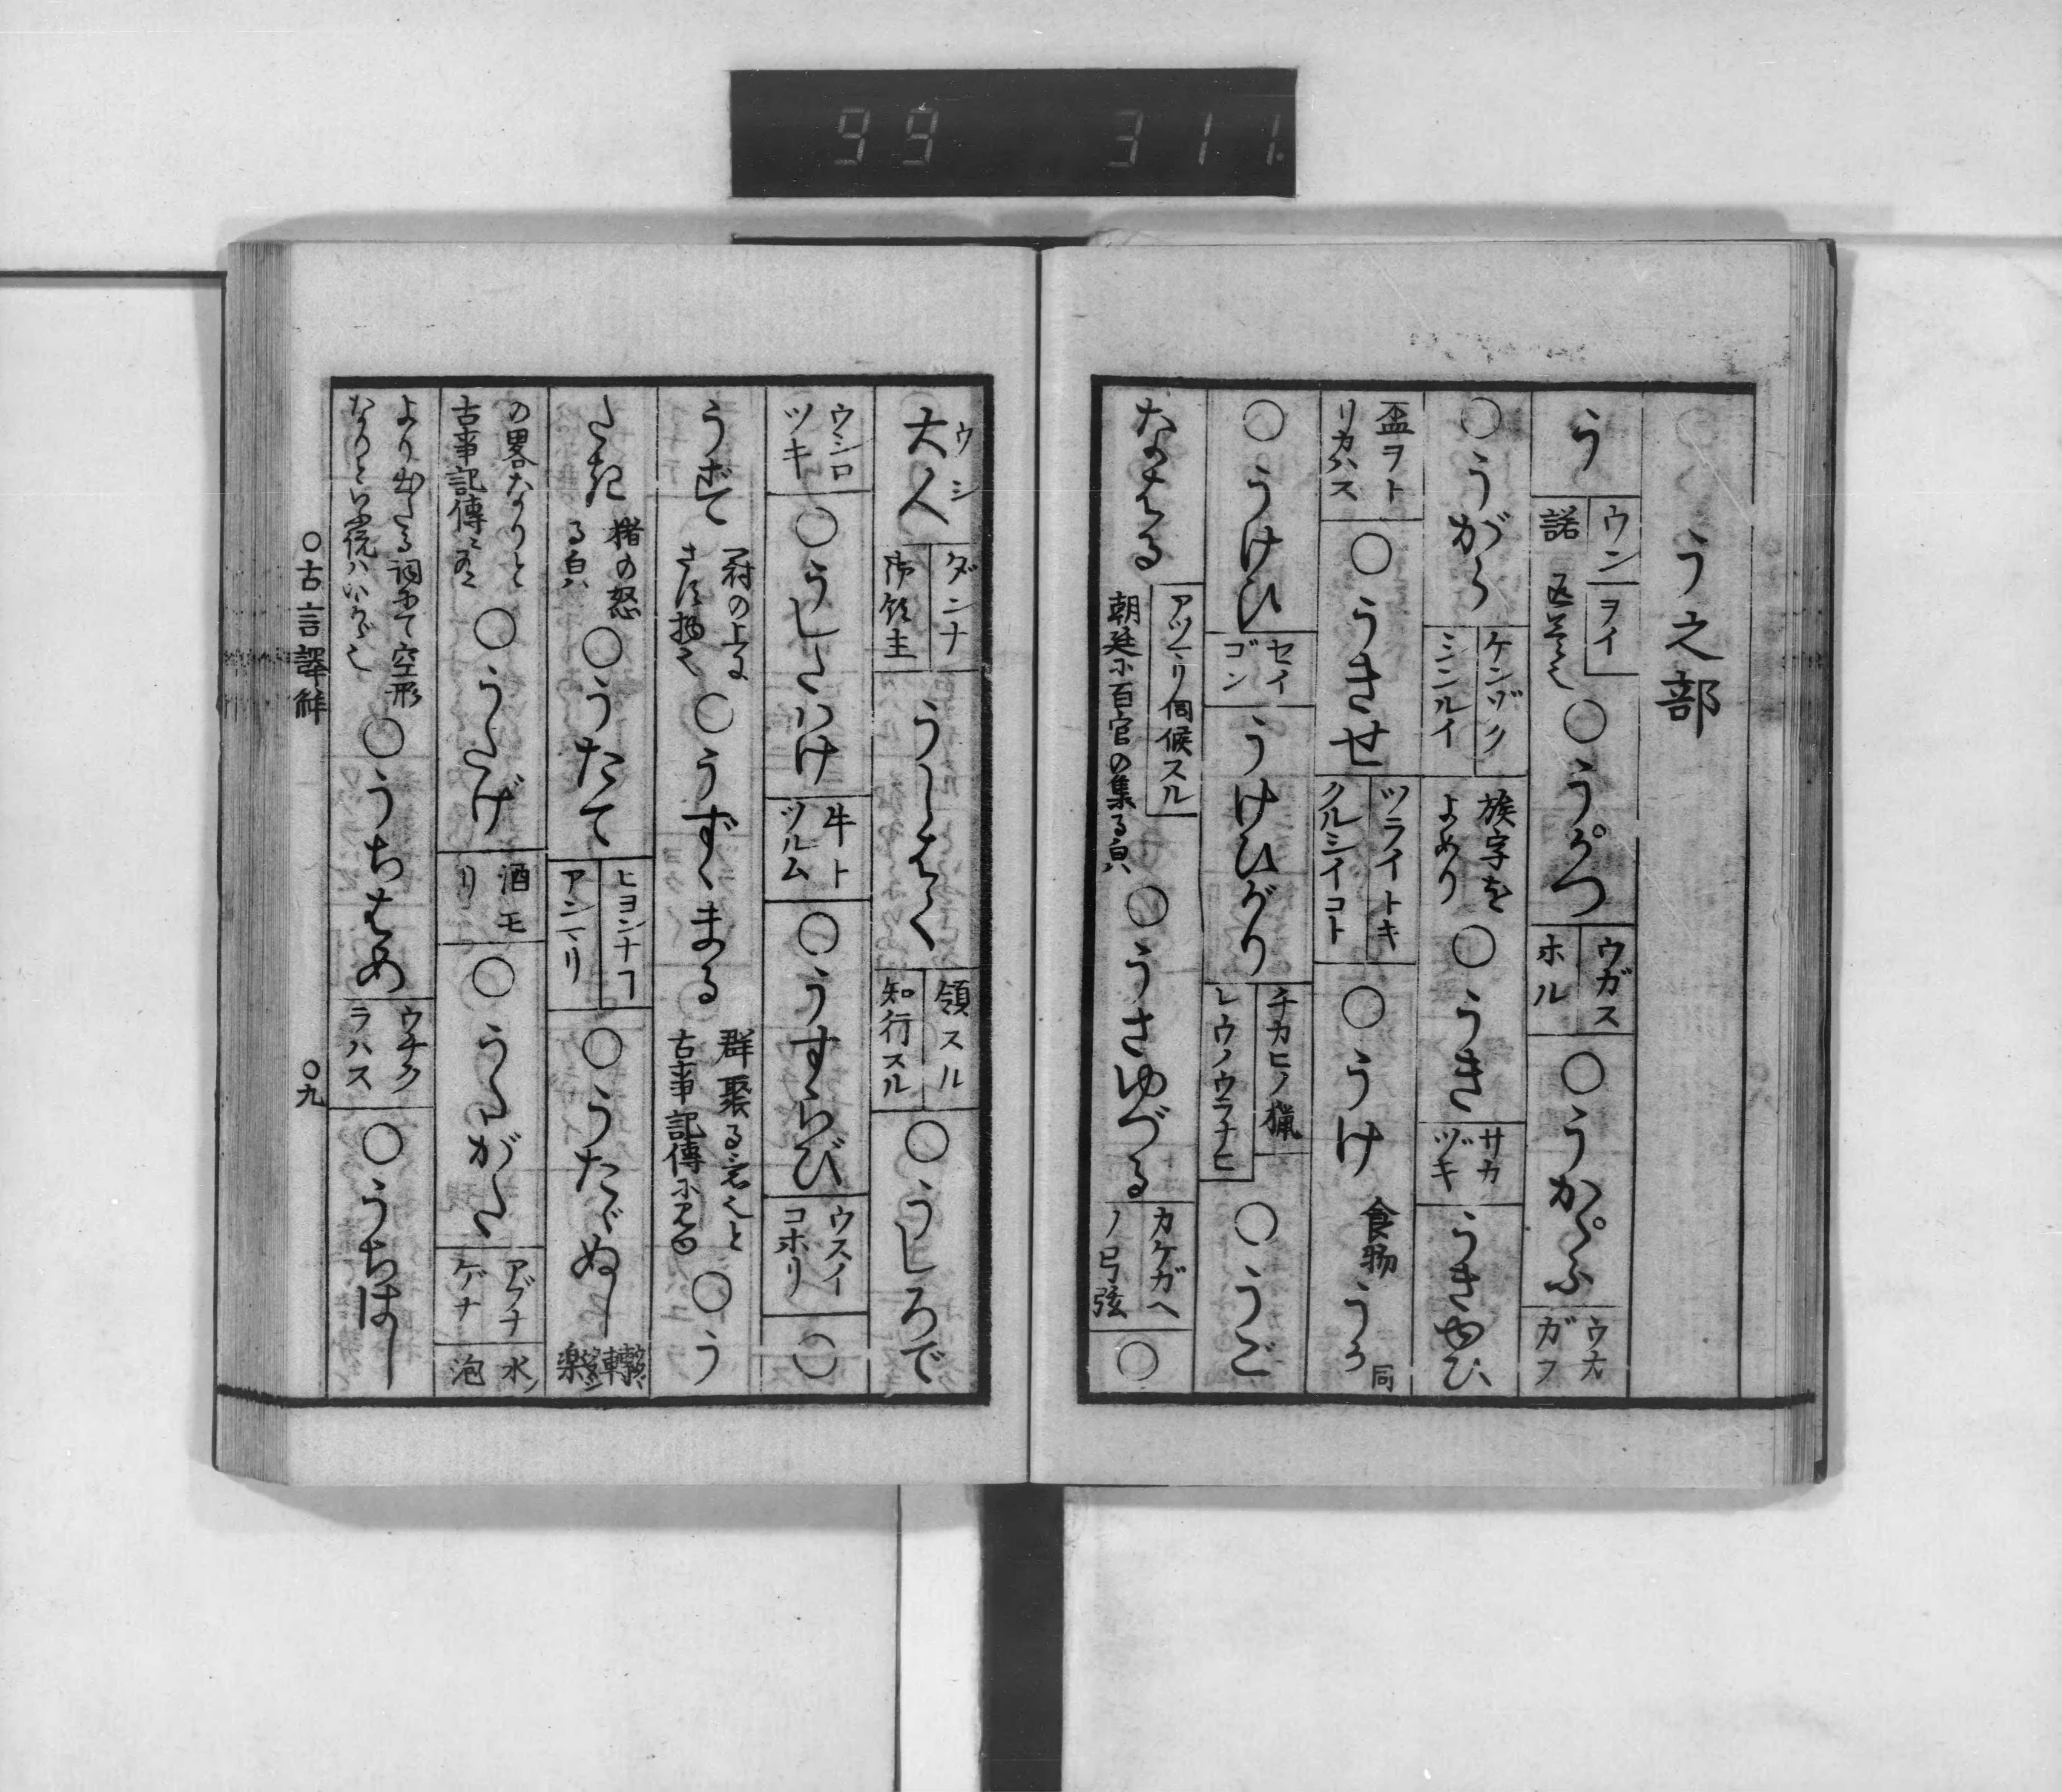 99 311.
う之部
う ウン ヲイ 諾 ○うがつ ウガス ホル ○うかゞふ ウカガフ
○うがら ケンヅク シンルイ 族字を よめり ○うき サカヅキ うきゆひ
盃ヲトリカハス ○うきせ ツライトキ クルシイコト ○うけ 食物 うか 同
○うけひ セイゴン うけひがり チカヒノ猟 レウノウラナヒ ○うご
なはる アツマリ伺候スル 朝廷に百官の集る㒵 ○うさゆづる カケガヘノ弓弦 ○
大人 ウシ ダンナ 御領主 うしはく 領スル 知行スル ○うしろで
ウシロツキ ○うしたはけ 牛トツルム ○うすらび ウスイコホリ ○
うずて ○うずゝまる 群聚る意也と 古事記傳に見ゆ ○う
たき 猪の怒る㒵 ○うたて ヒヨンナヿ アンマリ ○うたゞぬし 轉楽
の畧なりと 古事記傳に ○うたげ 酒モリ ○うたがた アブナゲナ 水ノ泡
より出たる詞にて空形 なりといふ説ハ ○うちはめ ウチクラハス ○うちはし
○古言譯解 ○九